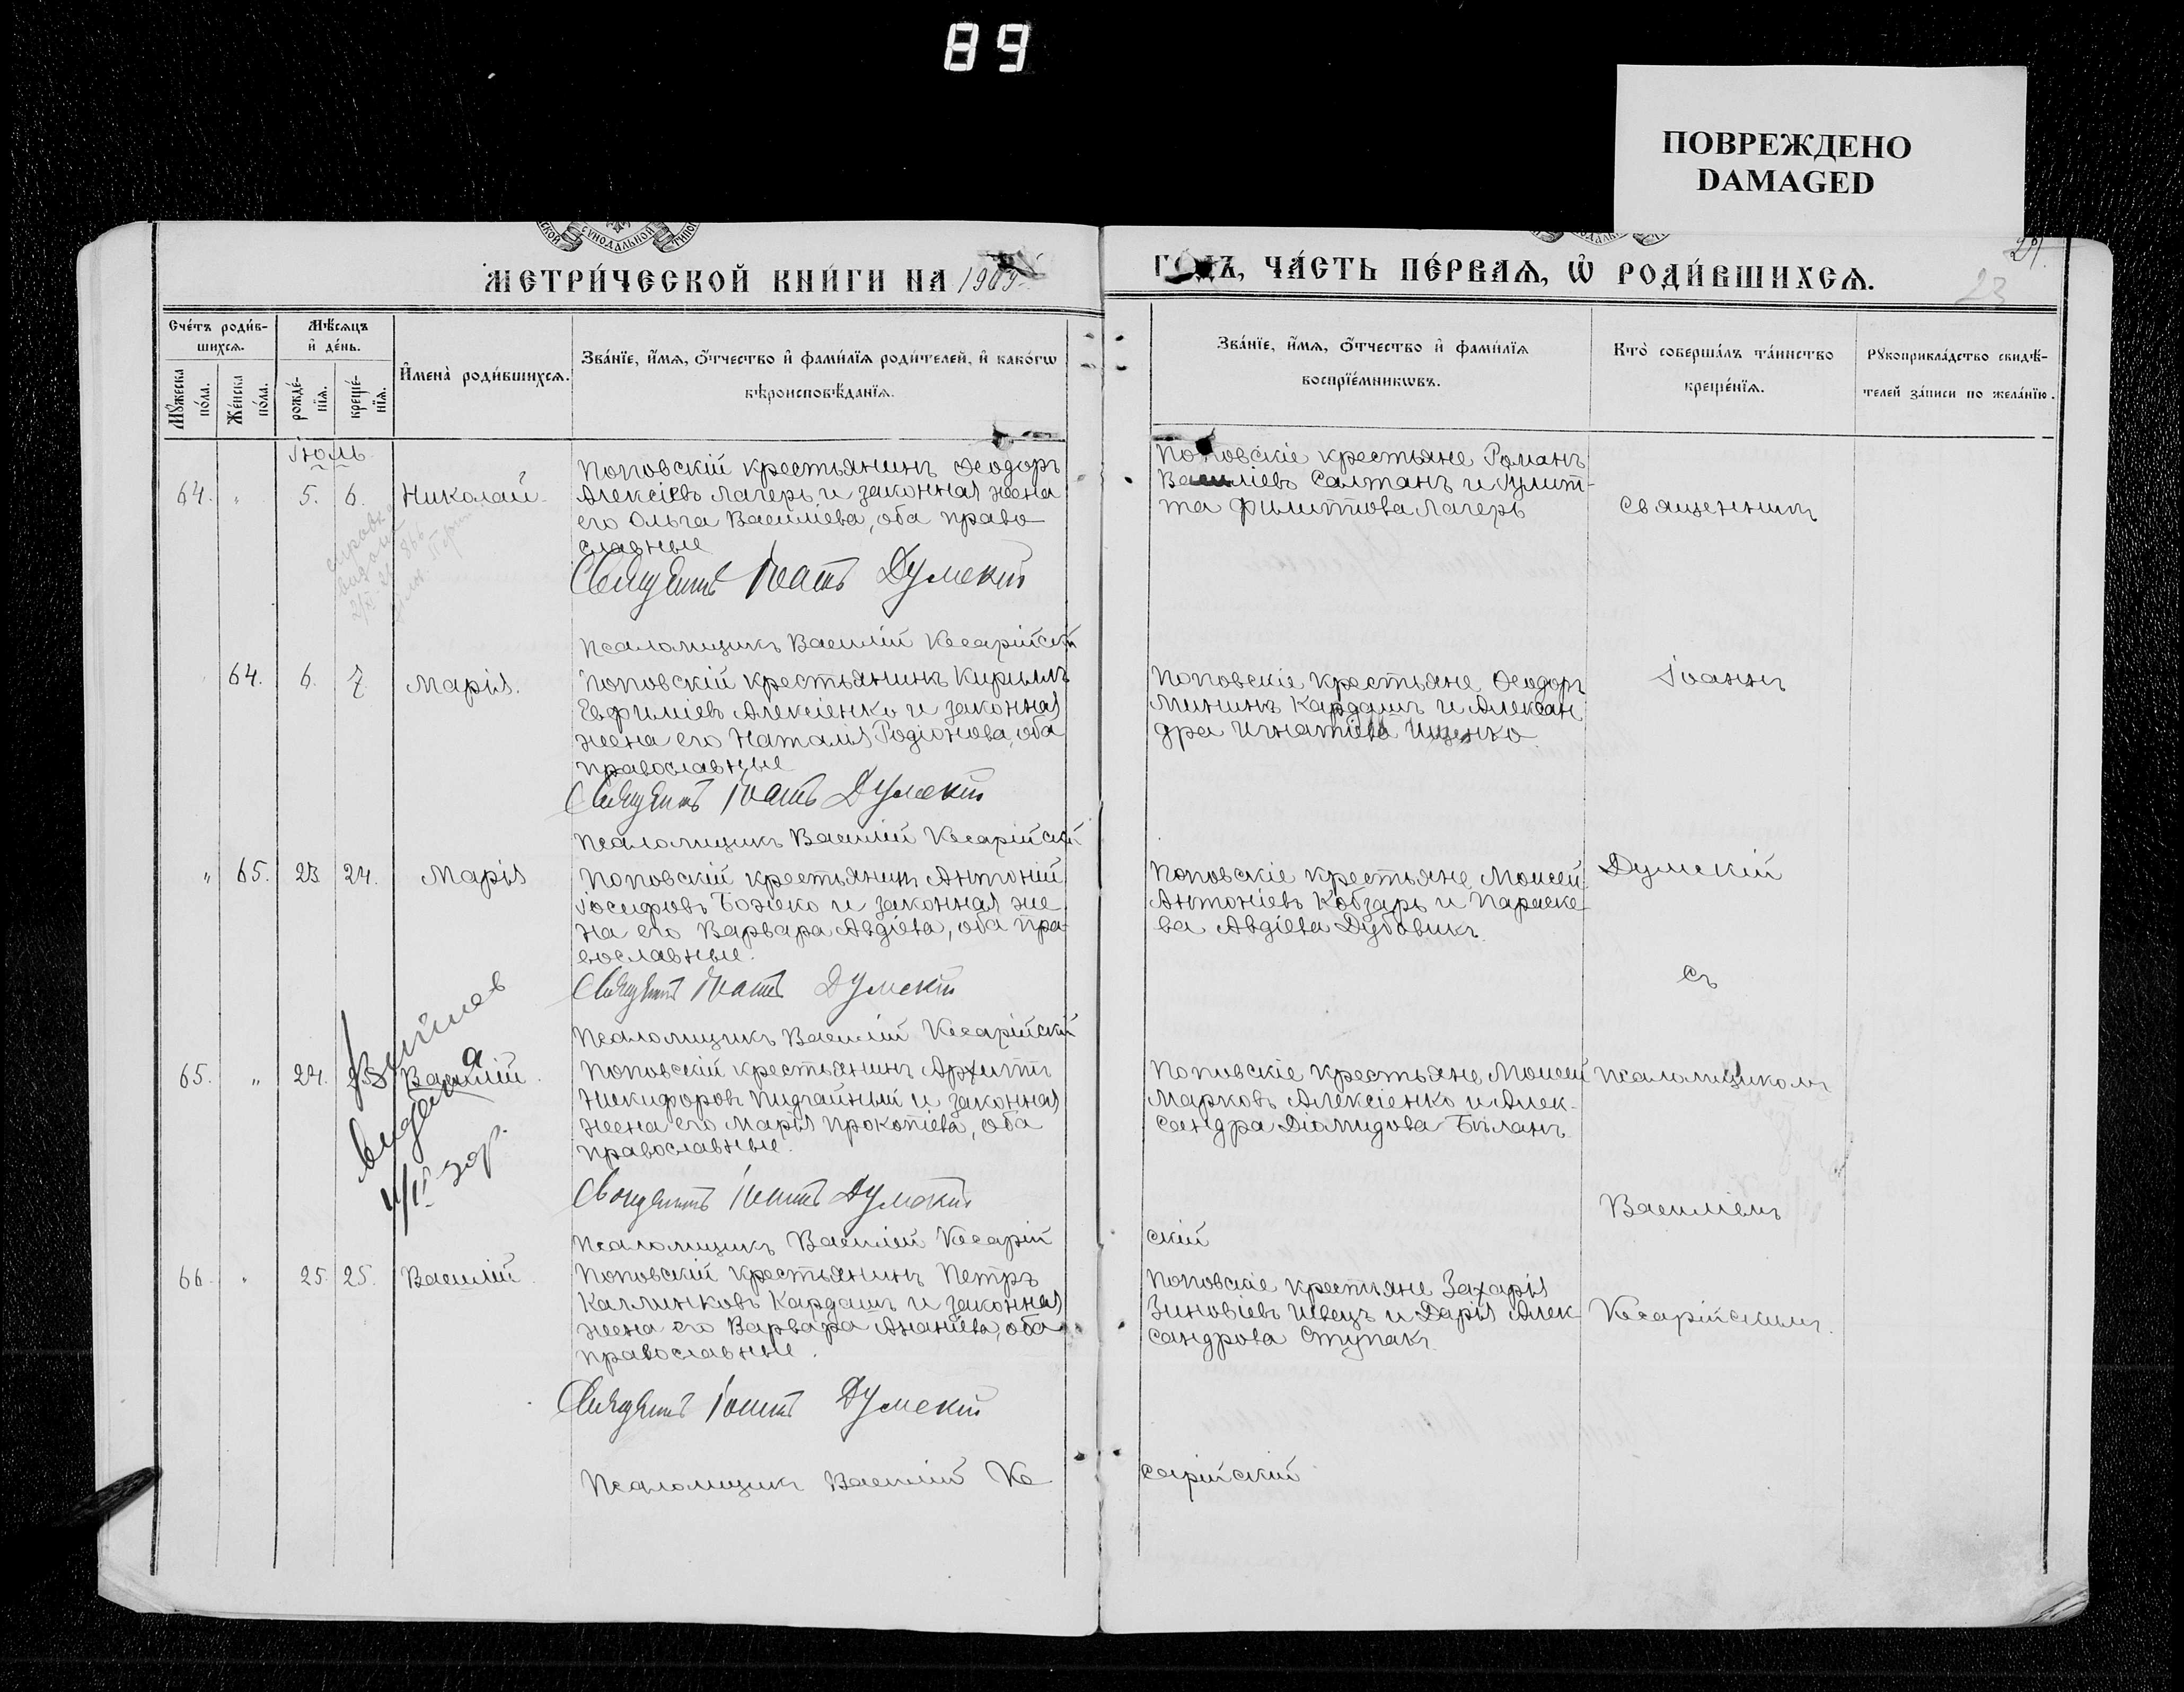 89
ПОВРЕЖДЕНО
DAMAGED
МЕТРИ́ЧЕСКОЙ КНИ́ГИ НА 1905
ГОДЪ, ЧА́СТЬ ПЕ́РВАѦ, Ѡ РОДИ́ВШИХСѦ.
29.
23
Сче́тъ роди́в-
шихсѧ.
Мѣ́сѧцъ
и де́нь.
Имена̀ роди́вшихсѧ.
Зва́нїе, и́мѧ, ѻ́тчество и фами́лїѧ роди́телей, и како́гѡ
вѣроисповѣ́данїѧ.
Зва́нїе, и́мѧ, ѻ́тчество и фами́лїѧ
воспрїе́мникѡвъ.
Кто̀ соверша́лъ та́инство
креще́нїѧ.
Рꙋкоприкла́дство свидѣ́-
телей за́писи по жела́нїю.
Мꙋжеска
по́ла.
Же́нска
по́ла.
рожде́-
нїѧ.
креще́-
нїѧ.
Іюль
64. " 5. 6. Николай
Поповскій крестьянинъ Ѳеодоръ
Алексіевъ Лагерь и законная жена
его Ольга Василіева, оба право
славные
Священникъ Іоаннъ Думскій
Псаломщикъ Василій Кесарійскій
Поповскіе крестьяне Романъ
Василіевъ Салтанъ и Іулит-
та Филиппова Лагерь
Священникъ
справка
видана
64. 6. 7. Марія.
Поповскій крестьянинъ Кириллъ
Евфиміевъ Алексіенко и законная
жена его Наталія Родіонова, оба
православные
Священникъ Іоаннъ Думскій
Псаломщикъ Василій Кесарійскій
Поповскіе крестьяне Ѳеодоръ
Мининъ Кардашъ и Алексан
дра Игнатіева Ищенко.
Іоаннъ
" 65. 23 24. Марія
Поповскій крестьянинъ Антоній
Іосифовъ Божко и законная же
на его Варвара Авдіева, оба пра-
вославные.
Священникъ Іоаннъ Думскій
Псаломщикъ Василій Кесарійскій
Поповскіе крестьяне Моисей
Антоніевъ Кобзарь и Параске-
ва Авдіева Дубовикъ.
Думскій
съ
65. " 24. 25. Василій.
видана
Поповскій крестьянинъ Архиппъ
Никифоровъ Пидчайный и законная
жена его Марія Прокопіева, оба
православные.
Священникъ Іоаннъ Думскій
Псаломщикъ Василій Кесарій
скій
Поповскіе крестьяне Моисей
Марковъ Алексіенко и Алек-
сандра Діомидова Бѣланъ.
псаломщикомъ
Василіемъ
66. " 25. 25. Василій.
Поповскій крестьянинъ Петръ
Каллинковъ Кардашъ и законная
жена его Варвара Ананіева, оба
православные.
Священникъ Іоаннъ Думскій
Псаломщикъ Василій Ке
сарійскій
Поповскіе крестьяне Захарія
Зиновіевъ Швецъ и Дарія Алек-
сандрова Ступакъ.
Кесарійскимъ.